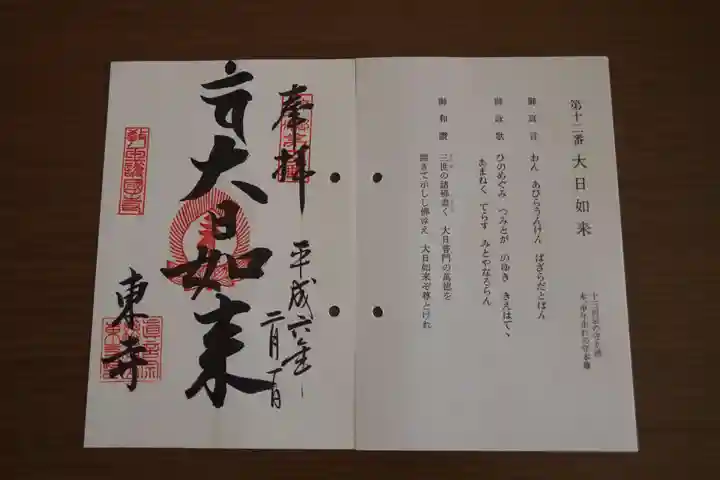 第十二番 大日如来
十三回忌の守本尊
未・申年生れの守本尊
御真言 おん あびらうんけん ばざらだとばん
御詠歌 ひのめぐみ つみとが のゆき きえはてゝ
あまねく てらす みとやなるらん
御和讃 三世の諸佛悉く 大日普門の萬徳を
開きて示しし佛ゆえ 大日如来ぞ尊とけれ
奉拝 平成六年
二月一日
大日如来
東寺
教王護国寺